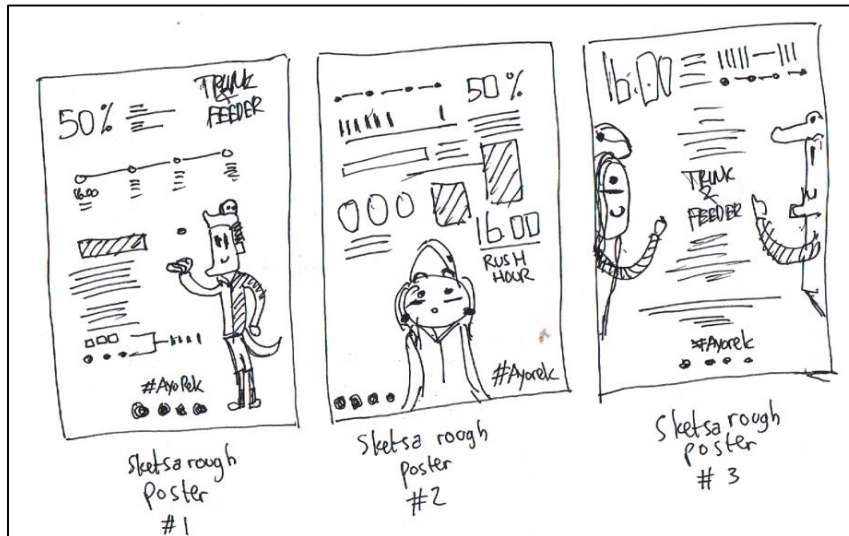 50%
TRUNK
&
FEEDER
16.00
#AyoRek
Sketsa rough
poster
#1
50%
16.00
RUSH
HOUR
#Ayorek
Sketsa rough
poster
#2
16.00
TRUNK
&
FEEDER
#Ayorek
Sketsa rough
poster
#3